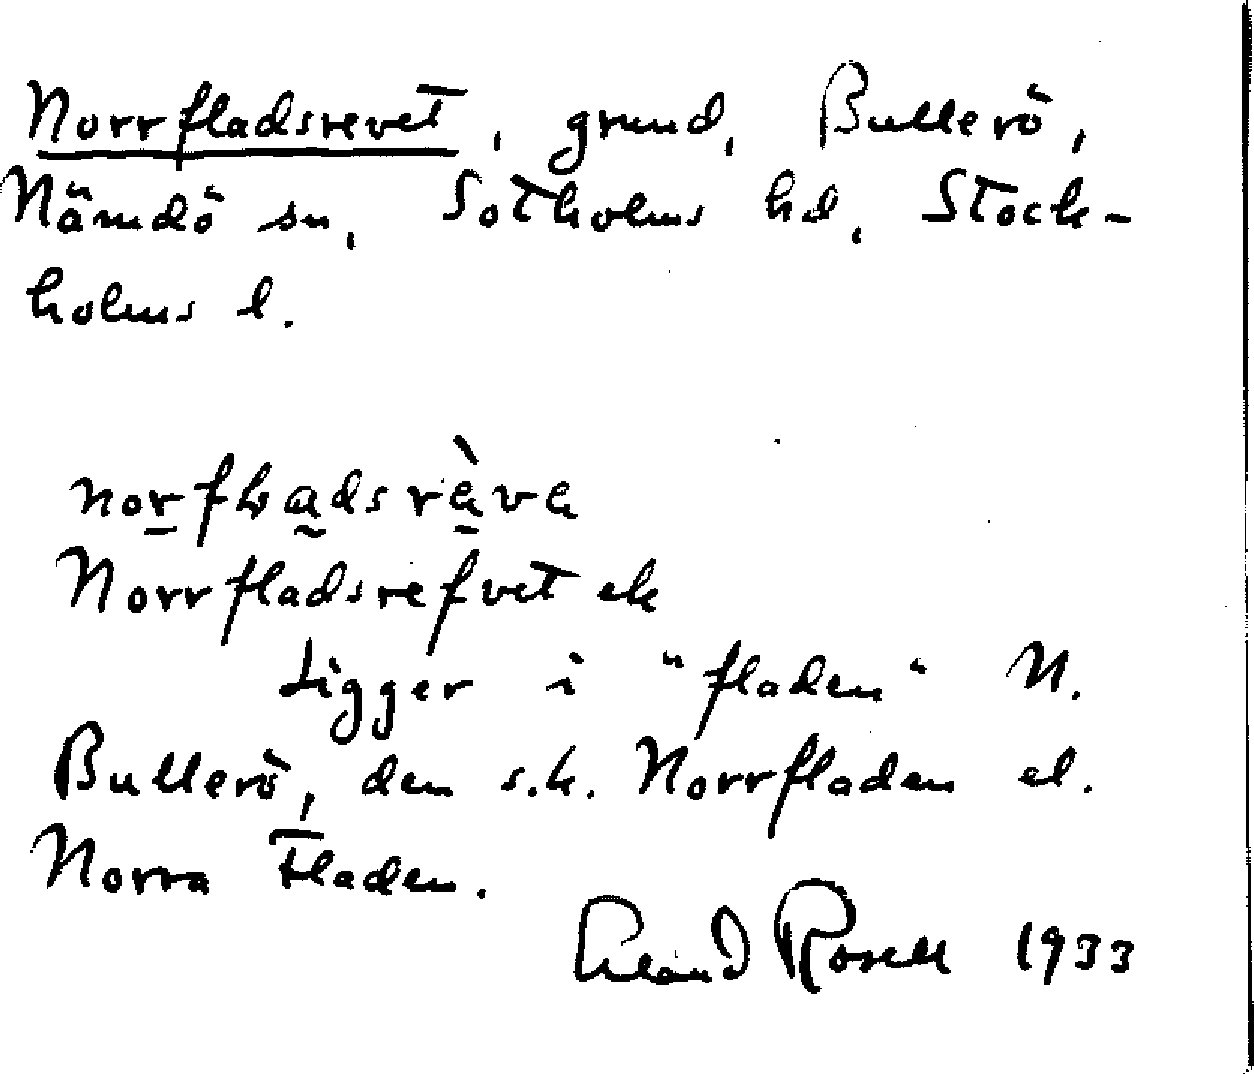 Norrfladsrevet, grund, Bullerö,
Nämdö sn, Sotholms hd, Stock-
holms l.
Norrfladsrefvet ek
Ligger i "fladen" N.
Bullerö, den s.k. Norrfladen el.
Norra Fladen.
Erland Rosell 1933